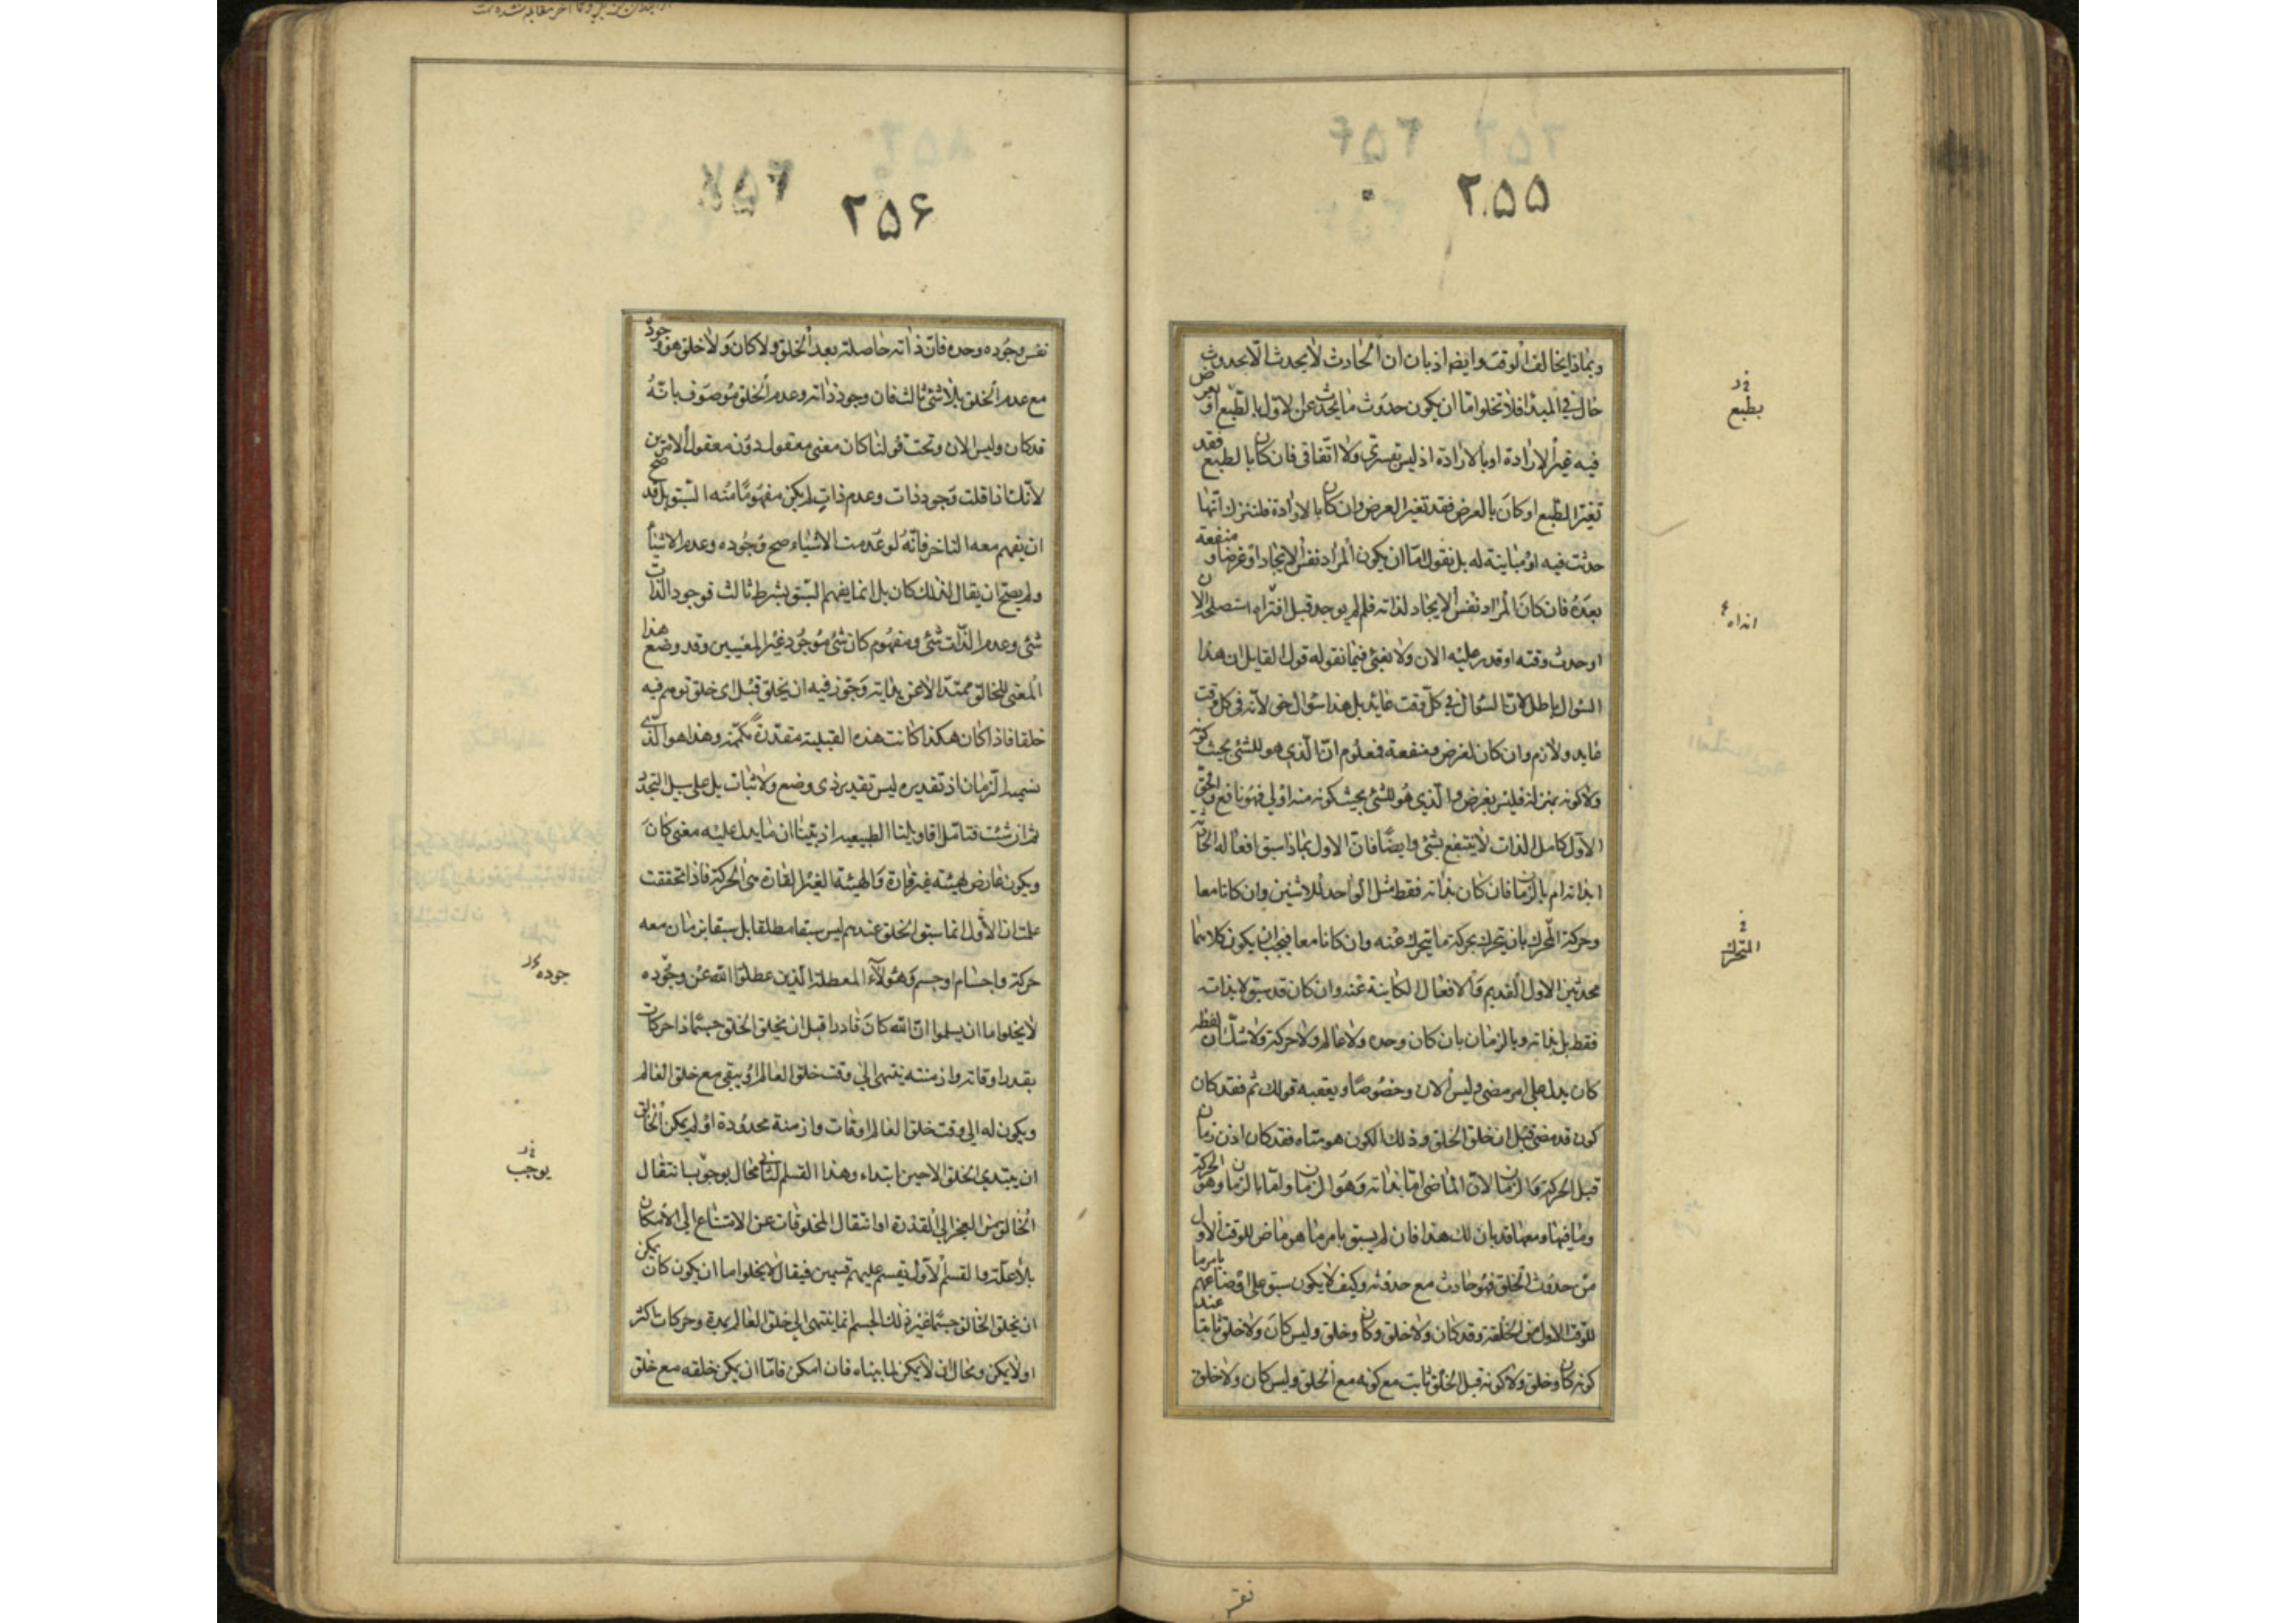 ۲۵۵
وبماذا يخالف الوقت وايضا اذ بان ان الحادث لا يحدث الا بحدوث
حال في المبدأ فلا تخلوا اما ان يكون حدوث ما يحدث عن الاول بالطبع او بعرض
فيه غير الارادة او بالارادة اذ ليس بقسري ولا اتفاقي فان كان بالطبع فقد
تغير الطبع او كان بالعرض فقد تغير العرض وان كان بالارادة فلننزل انها
حدثت فيه او مباينة له بل نقول اما ان يكون المراد نفس الايجاد او غرضا ومنفعة
بعده فان كان المراد نفس الايجاد لذاته فلم لم يوجد قبل استصلحه الان
او حدث وقته او قدر عليه الان ولا نعنى فيما نقوله قول القايل ان هذا
السؤال باطل لان السؤال في كل وقت عايد بل هذا سؤال حق لانه في كل وقت
عايد ولازم وان كان لغرض ومنفعة فمعلوم ان الذي هو للشئ بحيث كونه
ولا كونه بمنزلة فليس بغرض والذي هو للشئ بحيث كونه منه اولى فهو نافع والحق
الاول كامل الذات لا ينتفع بشئ وايضا فان الاول بماذا سبق افعاله الحادثة
ابذاته ام بالزمان فان كان بذاته فقط مثل الواحد للاثنين وان كانا معا
وحركة المحرك بان يتحرك بحركة ما يتحرك عنه وان كانا معا فيجب ان يكون كلاهما
محدثين الاول القديم والافعال الكاينة عنه وان كان قد سبق لا بذاته
فقط بل بذاته وبالزمان بان كان وحده ولا عالم ولا حركة ولا شك ان لفظة
كان يدل على امر مضى وليس الان وخصوصا ويعقبه قولك ثم فقد كان
كون قد مضى قبل ان خلق الخلق وذلك الكون هو متناه فقد كان اذن زمان
قبل الحركة والزمان لان الماضي اما بذاته وهو الزمان واما بالزمان وهو الحركة
وما فيها ومعها فقد بان لك هذا فان لم يسبق بامر ما هو ماض للوقت الاول
من حدوث الخلق فهو حادث مع حدوثه وكيف لا يكون سبق على اوضاعهم بامر ما
للوقت الاول من الخلقة وقد كان ولا خلق وكان وخلق وليس كان ولا خلق ثابتا عند
كونه كان وخلق ولا كونه قبل الخلق ثابت مع كونه مع الخلق وليس كان ولا خلق
بطبع
المتحرك
۲۵۶
نفس وجوده وحده فان ذاته حاصلة بعد الخلق ولا كان ولا خلق هو وجود
مع عدم الخلق بلا شئ ثالث فان وجود ذاته وعدم الخلق موصوف بانه
قد كان وليس الان وتحت قولنا كان معنى معقول دون معقول الامرين
لانك اذا قلت وجود ذات وعدم ذات لم يكن مفهوما منه السبق بل قد صح
ان يفهم معه التاخر فانه لو عدمت الاشياء صح وجوده وعدم الاشياء
ولم يصح ان يقال لذلك كان بل انما يفهم السبق بشرط ثالث فوجود الذات
شئ وعدم الذات شئ ومفهوم كان شئ موجود غير المعنيين وقد وضع هذا
المعنى للخالق ممتدا لا عن بداية وجوز فيه ان يخلق قبل اي خلق توهم فيه
خلقا فاذا كان هكذا كانت هذه القبلية مقدرة مكممة وهذا هو الذي
نسميه الزمان اذ تقديره ليس تقدير ذي وضع ولا ثبات بل على سبيل التجدد
ثم ان شئت فتامل اقاويلنا الطبيعية اذ بينا ان ما يدل عليه معنى كان
ويكون عارض لهيئة غير قارة والهيئة الغير القارة هي الحركة فاذا تحققت
علمت ان الاول انما سبق الخلق عندهم ليس سبقا مطلقا بل سبقا بزمان معه
حركة واجسام او جسم وهؤلاء المعطلة الذين عطلوا الله عن وجوده
لا يخلوا اما ان يسلموا ان الله كان قادرا قبل ان يخلق الخلق جسما ذا حركات
بقدر اوقاته وازمنته ينتهى الي وقت خلق العالم او يبقى مع خلق العالم
ويكون له الي وقت خلق العالم اوقات وازمنة محدودة او لم يمكن الخالق
ان يبتدي الخلق الا حين ابتداء وهذا القسم الثاني محال يوجب انتقال
الخالق من العجز الي القدرة او انتقال المخلوقات عن الامتناع الي الامكان
بلا علة والقسم الاول يقسم عليهم قسمين فيقال لا يخلوا اما ان يكون كان يمكن
ان يخلق الخالق جسما غير ذلك الجسم انما ينتهى الي خلق العالم بمدة وحركات اكثر
او لا يمكن ومحال ان لا يمكن لما بيناه فان امكن فاما ان يمكن خلقه مع خلق
جوده
يوجب